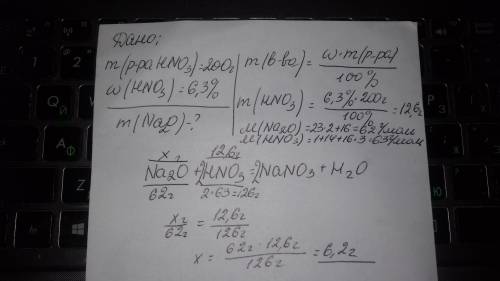 Дано:
m(р-ра HNO3)=200г
w(HNO3)=6,3%
m(Na2O)-?
m(в-ва)= w·m(р-ра) / 100%
m(HNO3)= 6,3%·200г / 100% =12,6г
M(Na2O)=23·2+16=62г/моль
M(HNO3)=1+14+16·3=63г/моль
xг 12,6г
Na2O+2HNO3=2NaNO3+H2O
62г 2·63=126г
xг / 62г = 12,6г / 126г
x= 62г·12,6г / 126г =6,2г